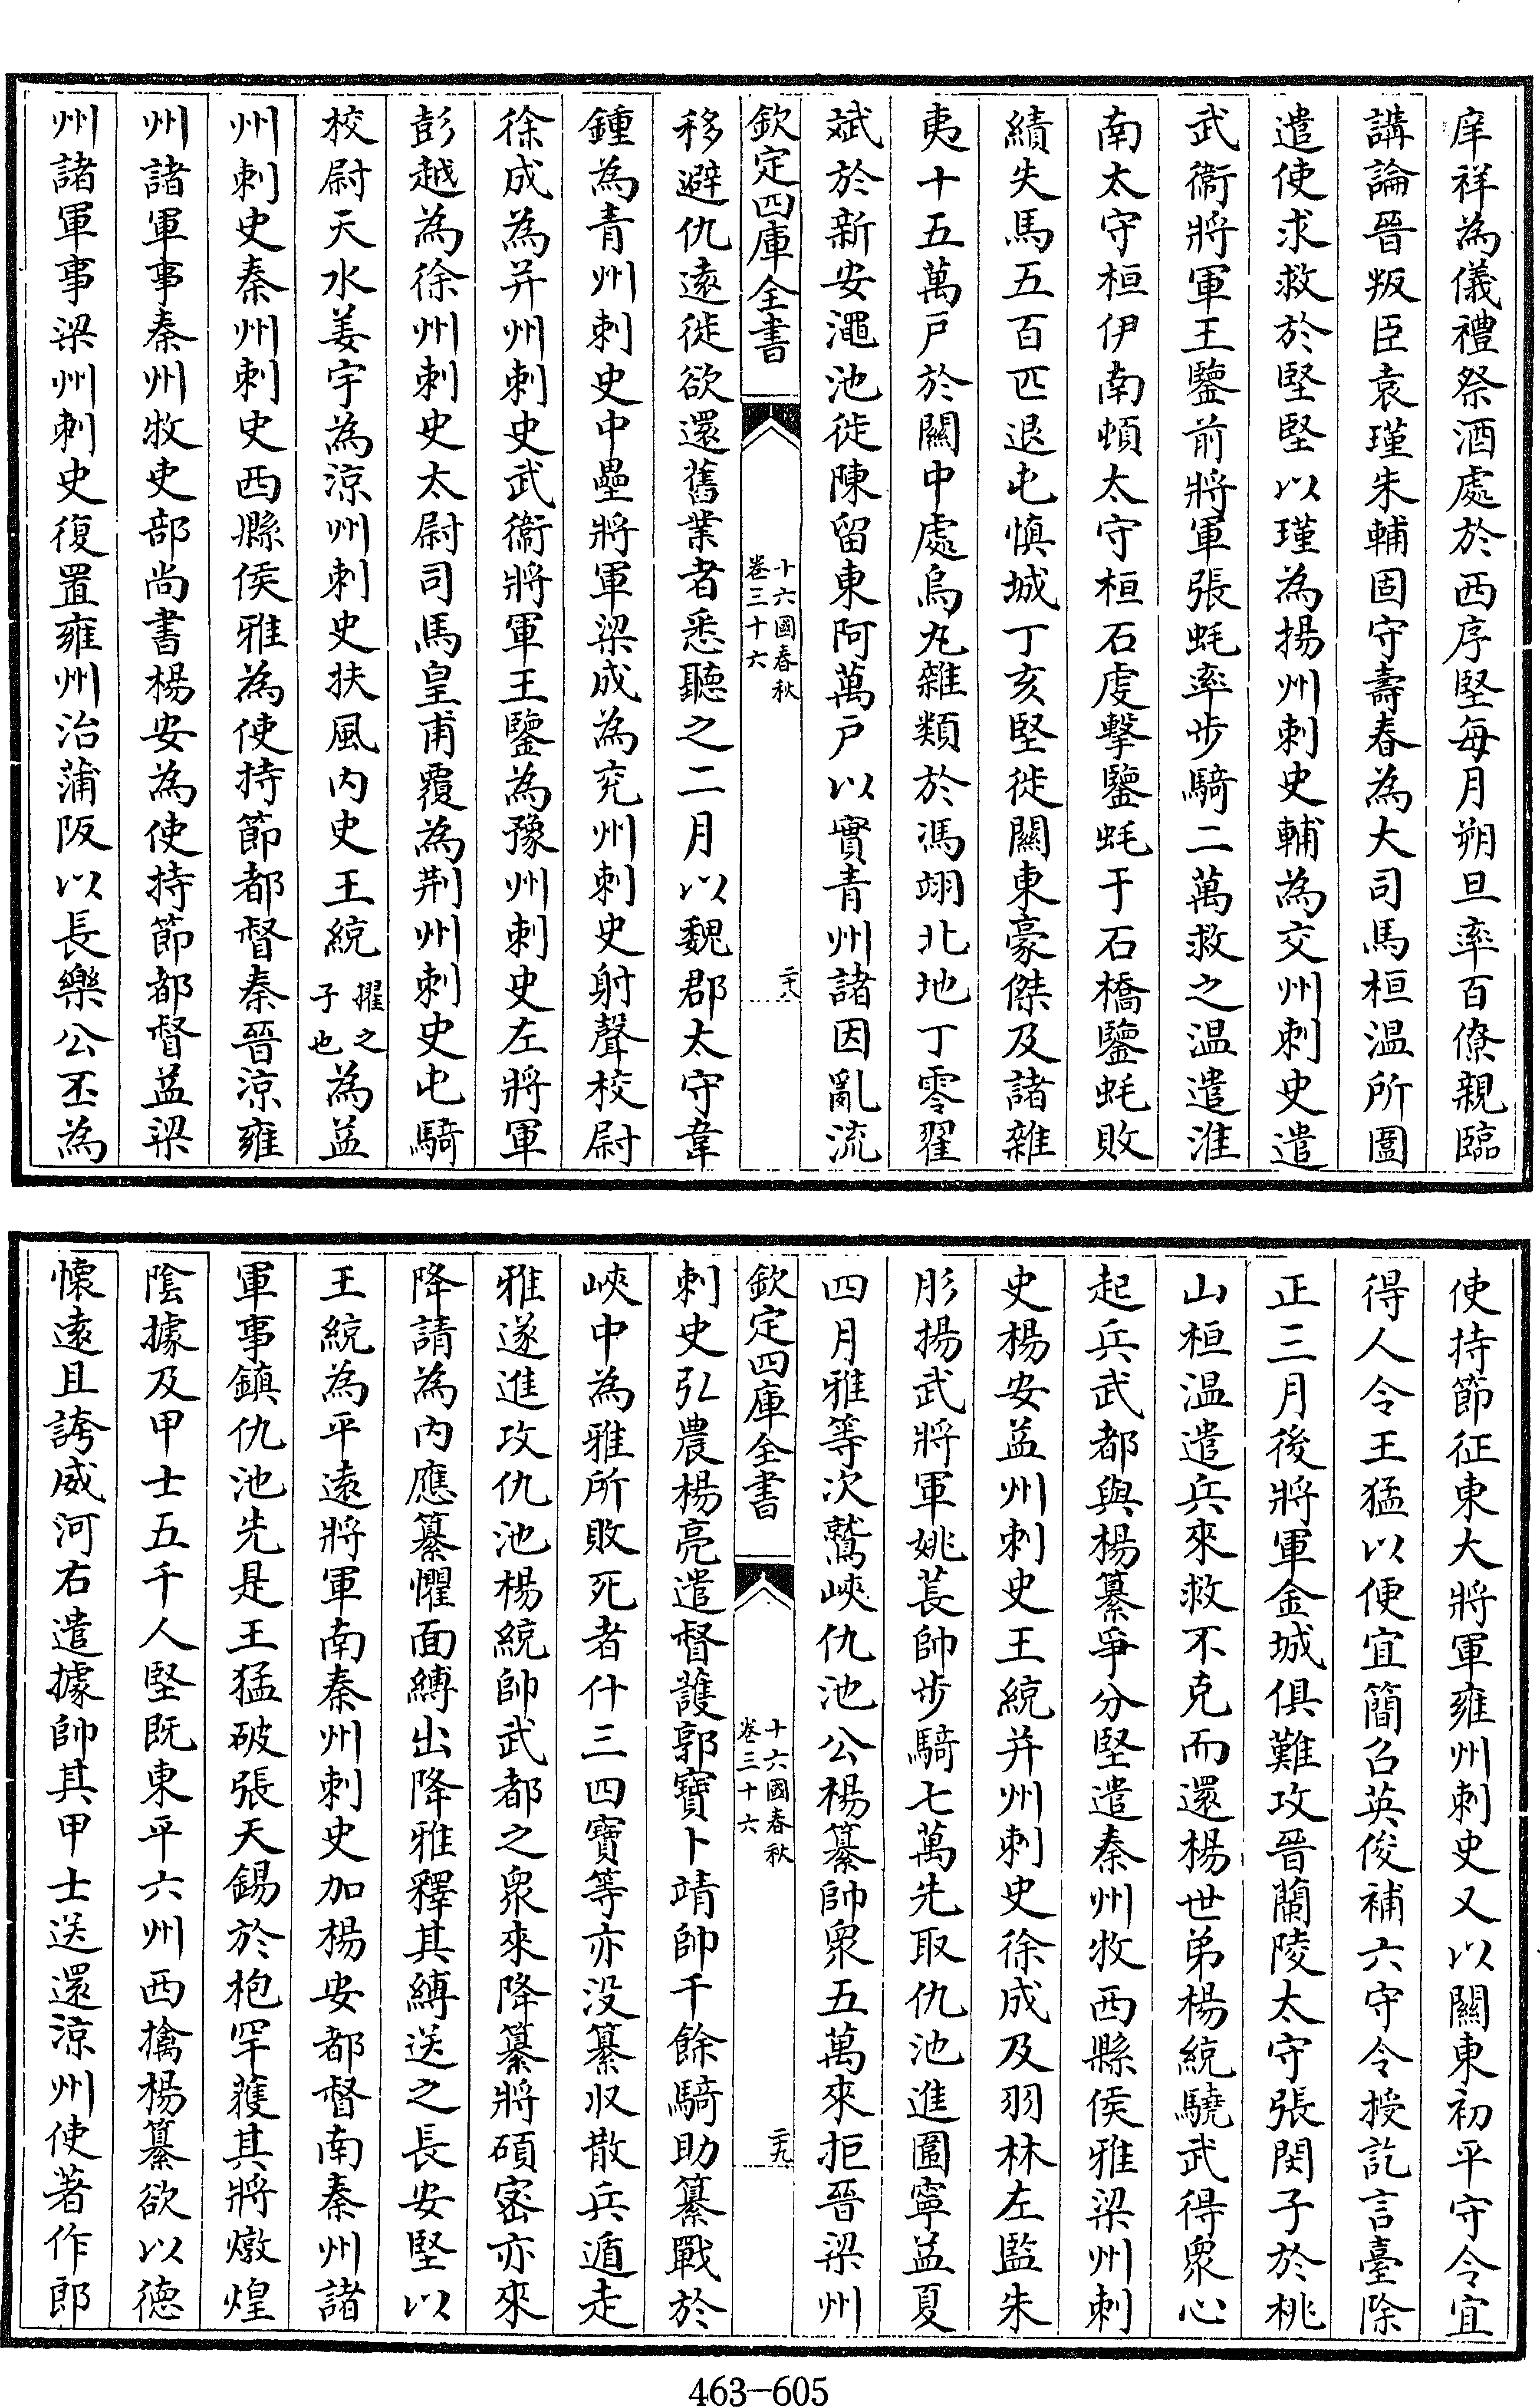 庠祥為儀禮祭酒處於西序堅每月朔旦率百僚親臨
講論晉叛臣袁瑾朱輔固守壽春為大司馬桓温所圍
遣使求救於堅堅以瑾為揚州刺史輔為交州刺史遣
武衛將軍王鑒前將軍張蚝率步騎二萬救之温遣淮
南太守桓伊南頓太守桓石虔擊鑒蚝于石橋鑒蚝敗
績失馬五百匹退屯慎城丁亥堅徙關東豪傑及諸雜
夷十五萬戸於關中處烏丸雜類於馮翊北地丁零翟
斌於新安澠池徙陳留東阿萬戸以實青州諸因亂流
欽定四庫全書
十六國春秋
卷三十六
二十八
移避仇遠徙欲還舊業者悉聽之二月以魏郡太守韋
鍾為青州刺史中壘將軍梁成為兖州刺史射聲校尉
徐成為并州刺史武衛將軍王鑒為豫州刺史左將軍
彭越為徐州刺史太尉司馬皇甫覆為荆州刺史屯騎
校尉天水姜宇為涼州刺史扶風内史王統擢之子也為益
州刺史秦州刺史西縣侯雅為使持節都督秦晉涼雍
州諸軍事秦州牧吏部尚書楊安為使持節都督益梁
州諸軍事梁州刺史復置雍州治蒲阪以長樂公丕為
使持節征東大將軍雍州刺史又以關東初平守令宜
得人令王猛以便宜簡召英俊補六守令授訖言臺除
正三月後將軍金城俱難攻晉蘭陵太守張閔子於桃
山桓温遣兵來救不克而還楊世弟楊統驍武得衆心
起兵武都與楊纂爭分堅遣秦州牧西縣侯雅梁州刺
史楊安益州刺史王統并州刺史徐成及羽林左監朱
肜揚武將軍姚萇帥步騎七萬先取仇池進圖寧益夏
四月雅等次鷲峽仇池公楊纂帥衆五萬來拒晉梁州
欽定四庫全書
十六國春秋
卷三十六
二十九
刺史弘農楊亮遣督護郭寶卜靖帥千餘騎助纂戰於
峽中為雅所敗死者什三四寶等亦没纂收散兵遁走
雅遂進攻仇池楊統帥武都之衆來降纂將碩密亦來
降請為内應纂懼面縛出降雅釋其縛送之長安堅以
王統為平遠將軍南秦州刺史加楊安都督南秦州諸
軍事鎮仇池先是王猛破張天錫於枹罕獲其將燉煌
陰據及甲士五千人堅既東平六州西擒楊纂欲以德
懐遠且誇威河右遣據帥其甲士送還涼州使著作郎
463-605